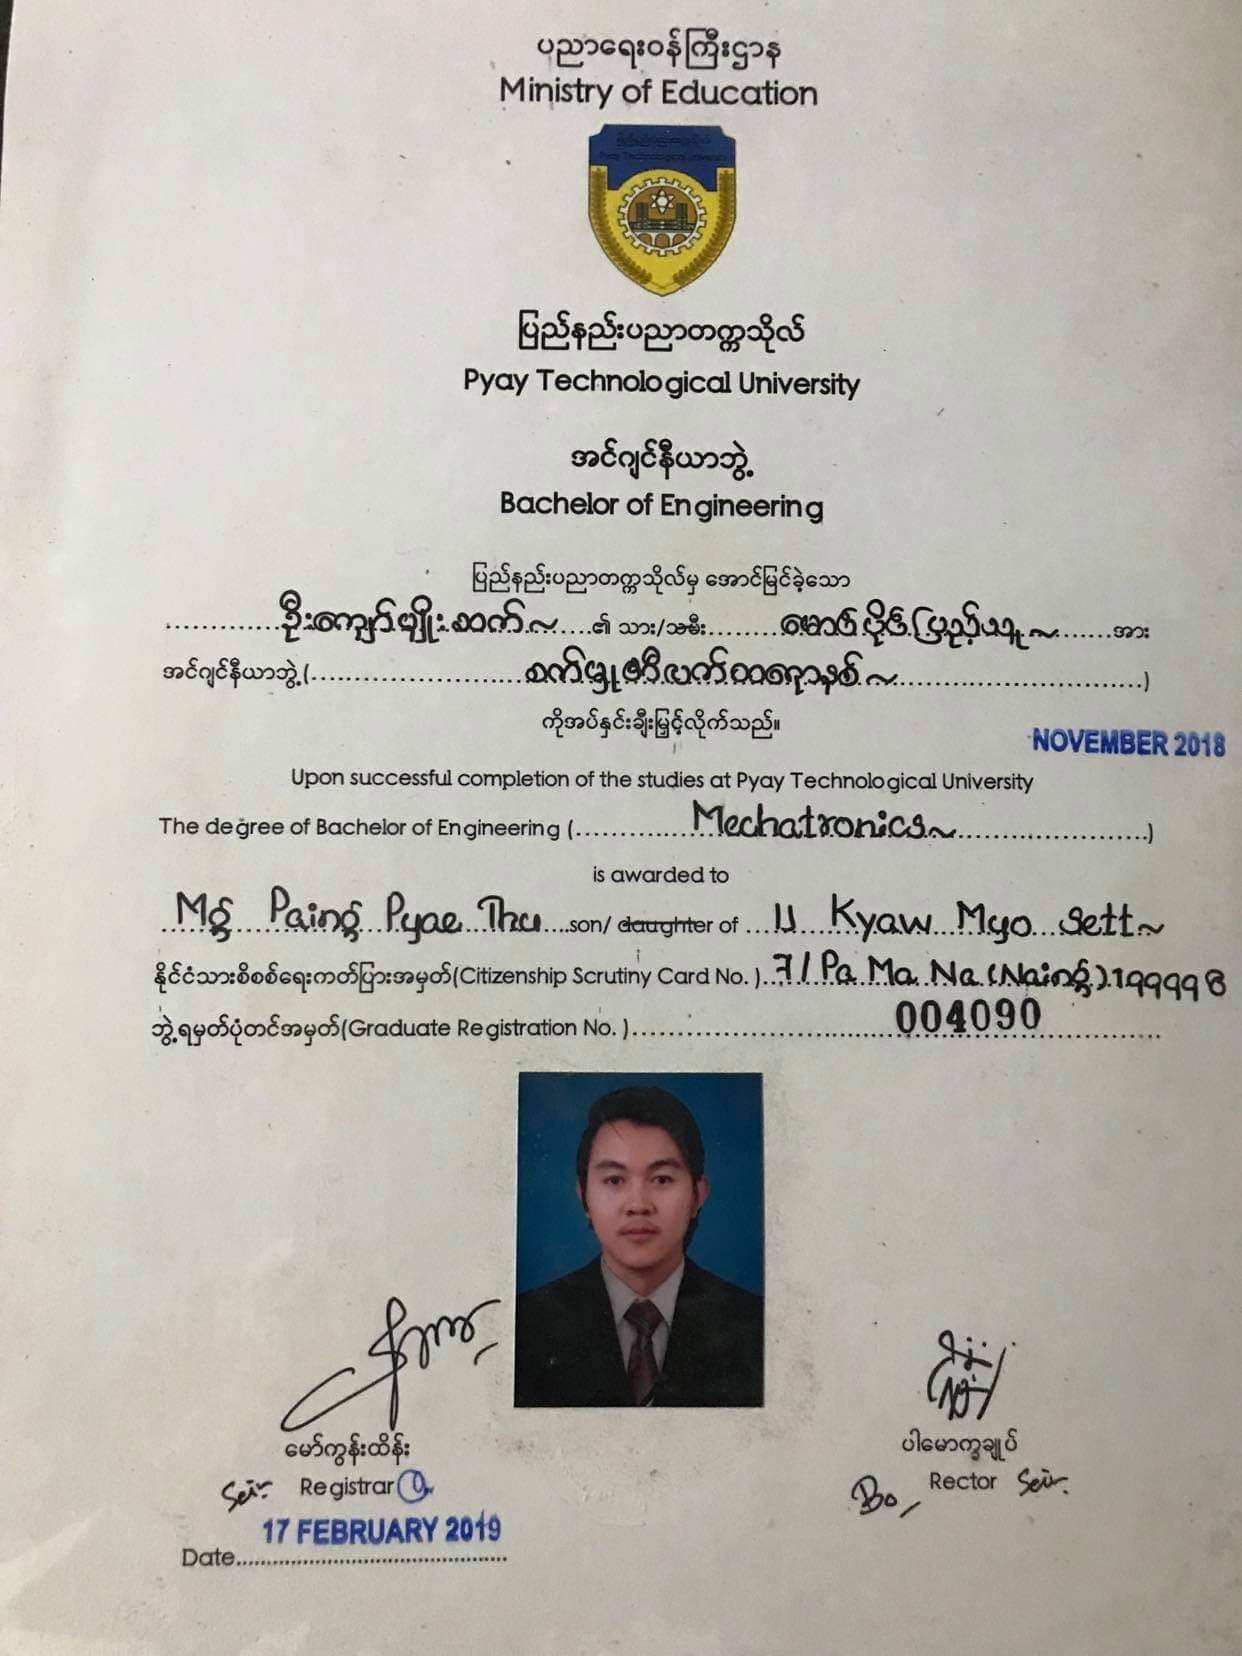 ပညာရေးဝန်ကြီးဌာန
Ministry of Education
Pyay Technological University
ပြည်နည်းပညာတက္ကသိုလ်
Pyay Technological University
အင်ဂျင်နီယာဘွဲ့
Bachelor of Engineering
ပြည်နည်းပညာတက္ကသိုလ်မှ အောင်မြင်ခဲ့သော
ဦးကျော်မျိုးဆက်~ ၏ သား/သမီး မောင်ပိုင်ပြည့်သူ~ အား
အင်ဂျင်နီယာဘွဲ့(စက်မှုအီလက်ထရောနစ်~)
ကိုအပ်နှင်းချီးမြှင့်လိုက်သည်။
NOVEMBER 2018
Upon successful completion of the studies at Pyay Technological University
The degree of Bachelor of Engineering (Mechatronics~)
is awarded to
Mg Paing Pyae Thu son/ daughter of U Kyaw Myo Sett~
နိုင်ငံသားစိစစ်ရေးကတ်ပြားအမှတ်(Citizenship Scrutiny Card No. ) 7/Pa Ma Na (Naing) 199998
ဘွဲ့ရမှတ်ပုံတင်အမှတ်(Graduate Registration No. ) 004090
မော်ကွန်းထိန်း
Registrar
ပါမောက္ခချုပ်
Rector
17 FEBRUARY 2019
Date